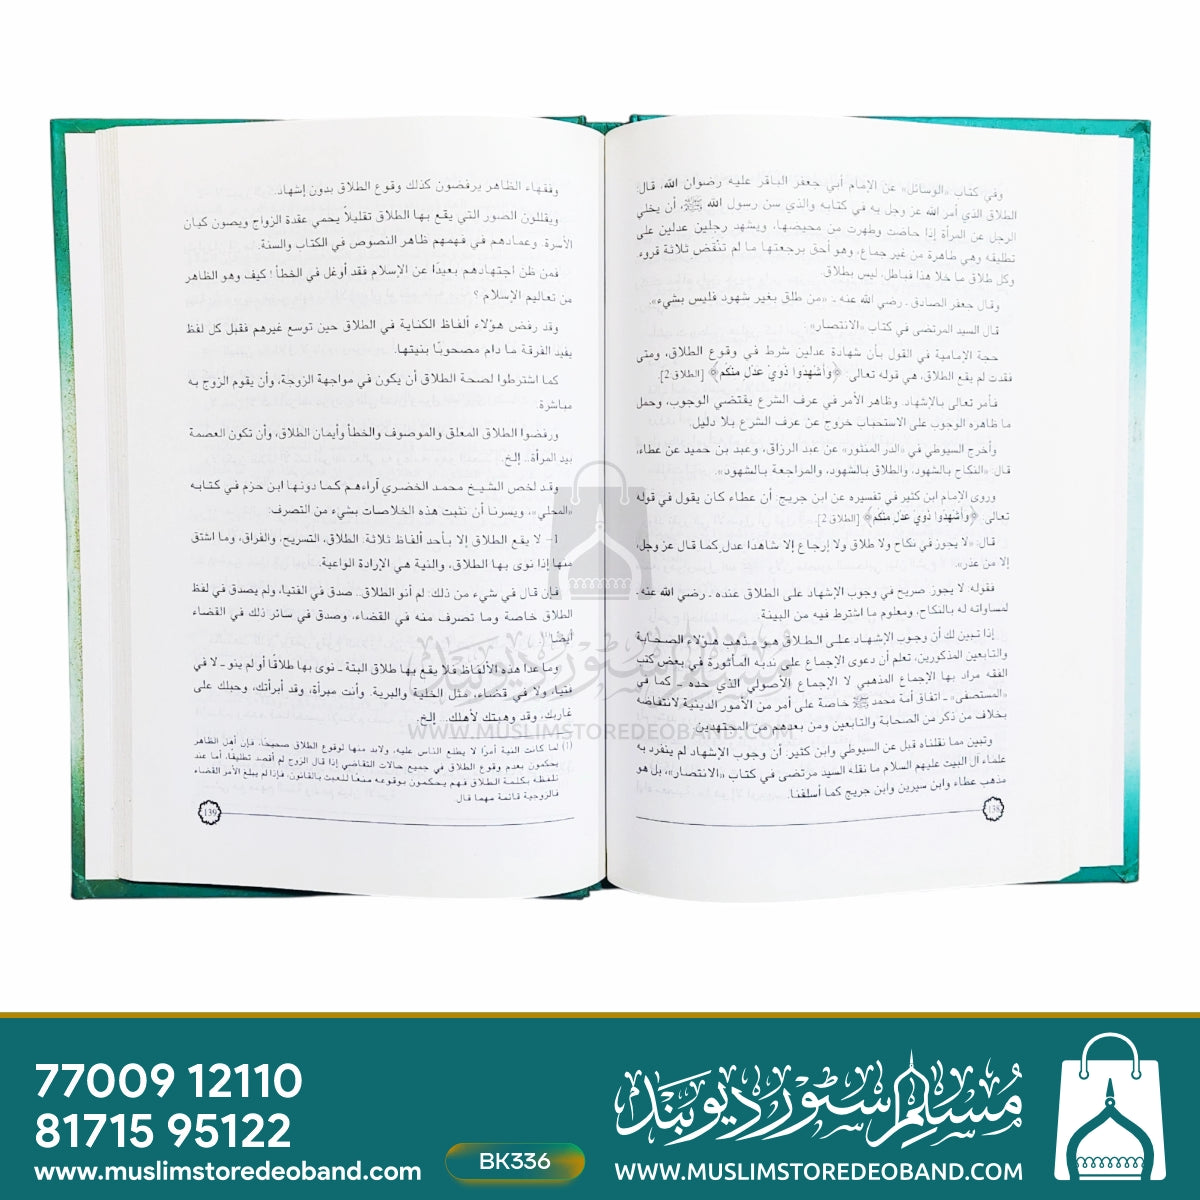 وفي كتاب «الوسائل» عن الإمام أبي جعفر الباقر عليه رضوان الله، قال:
الطلاق الذي أمر الله عز وجل به في كتابه والذي سن رسول الله ﷺ، أن يخلي
الرجل عن المرأة إذا حاضت وطهرت من محيضها، ويشهد رجلين عدلين على
تطليقه وهي طاهرة من غير جماع، وهو أحق برجعتها ما لم تنقض ثلاثة قروء.
وكل طلاق ما خلا هذا فباطل، ليس بطلاق.
وقال جعفر الصادق ـ رضي الله عنه ـ «من طلق بغير شهود فليس بشيء».
قال السيد المرتضى في كتاب «الانتصار»:
حجة الإمامية في القول بأن شهادة عدلين شرط في وقوع الطلاق، ومتى
فقدت لم يقع الطلاق، هي قوله تعالى: ﴿وأشهدوا ذوي عدل منكم﴾ [الطلاق:2].
فأمر تعالى بالإشهاد. وظاهر الأمر في عرف الشرع يقتضي الوجوب، وحمل
ما ظاهره الوجوب على الاستحباب خروج عن عرف الشرع بلا دليل.
وأخرج السيوطي في «الدر المنثور» عن عبد الرزاق، وعبد بن حميد عن عطاء،
قال: «النكاح بالشهود، والطلاق بالشهود، والمراجعة بالشهود».
وروى الإمام ابن كثير في تفسيره عن ابن جريج: أن عطاء كان يقول في قوله
تعالى: ﴿وأشهدوا ذوي عدل منكم﴾ [الطلاق:2].
قال: «لا يجوز في نكاح ولا طلاق ولا إرجاع إلا شاهدا عدل كما قال عز وجل،
إلا من عذر».
فقوله: لا يجوز، صريح في وجوب الإشهاد على الطلاق عنده ـ رضي الله عنه ـ
لمساواته له بالنكاح، ومعلوم ما اشترط فيه من البينة.
إذا تبين لك أن وجوب الإشهاد على الطلاق هو مذهب هؤلاء الصحابة
والتابعين المذكورين، تعلم أن دعوى الإجماع على ندبه المأثورة في بعض كتب
الفقه مراد بها الإجماع المذهبي لا الإجماع الأصولي الذي حده ـ كما في
«المستصفى» ـ اتفاق أمة محمد ﷺ خاصة على أمر من الأمور الدينية لانتقاضه
بخلاف من ذكر من الصحابة والتابعين ومن بعدهم من المجتهدين.
وتبين مما نقلناه قبل عن السيوطي وابن كثير: أن وجوب الإشهاد لم ينفرد به
علماء آل البيت عليهم السلام ما نقله السيد مرتضى في كتاب «الانتصار»، بل هو
مذهب عطاء وابن سيرين وابن جريج كما أسلفنا.
138
وفقهاء الظاهر يرفضون كذلك وقوع الطلاق بدون إشهاد.
ويقللون الصور التي يقع بها الطلاق تقليلاً يحمي عقدة الزواج ويصون كيان
الأسرة. وعمادهم في فهمهم ظاهر النصوص في الكتاب والسنة.
فمن ظن اجتهادهم بعيدًا عن الإسلام فقد أوغل في الخطأ ! كيف وهو الظاهر
من تعاليم الإسلام ؟
وقد رفض هؤلاء ألفاظ الكناية في الطلاق حين توسع غيرهم فقبل كل لفظ
يفيد الفرقة ما دام مصحوبًا بنيتها.
كما اشترطوا لصحة الطلاق أن يكون في مواجهة الزوجة، وأن يقوم الزوج به
مباشرة.
ورفضوا الطلاق المعلق والموصوف والخطأ وأيمان الطلاق، وأن تكون العصمة
بيد المرأة.. إلخ.
وقد لخص الشيخ محمد الخضري آراءهم كما دونها ابن حزم في كتابه
«المحلي»، ويسرنا أن نثبت هذه الخلاصات بشيء من التصرف:
1– لا يقع الطلاق إلا بأحد ألفاظ ثلاثة: الطلاق، التسريح، والفراق، وما اشتق
منها إذا نوى بها الطلاق، والنية هي الإرادة الواعية.
فإن قال في شيء من ذلك: لم أنو الطلاق.. صدق في الفتيا، ولم يصدق في لفظ
الطلاق خاصة وما تصرف منه في القضاء، وصدق في سائر ذلك في القضاء
أيضًا(1).
وما عدا هذه الألفاظ فلا يقع بها طلاق البتة ـ نوى بها طلاقًا أو لم ينو ـ لا في
فتيا، ولا في قضاء، مثل الخلية والبرية. وأنت مبرأة، وقد أبرأتك، وحبلك على
غاربك، وقد وهبتك لأهلك.. إلخ.
(1) لما كانت النية أمرًا لا يطلع الناس عليه، ولابد منها لوقوع الطلاق صحيحًا، فإن أهل الظاهر
يحكمون بعدم وقوع الطلاق في جميع حالات التقاضي إذا قال الزوج لم أقصد تطليقًا، أما عند
تلفظه بكلمة الطلاق فهم يحكمون بوقوعه منعًا للعبث بالقانون، فإذا لم يبلغ الأمر القضاء
فالزوجية قائمة مهما قال.
139
مسلم ستور ديوبند
WWW.MUSLIMSTOREDEOBAND.COM
77009 12110
81715 95122
www.muslimstoredeoband.com
BK336
مسلم ستور ديوبند
WWW.MUSLIMSTOREDEOBAND.COM